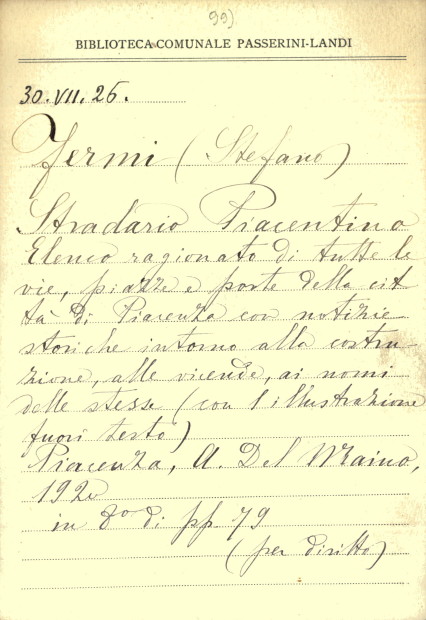 99)
BIBLIOTECA COMUNALE PASSERINI-LANDI
30.VII.26.
Fermi (Stefano)
Stradario Piacentino
Elenco ragionato di tutte le
vie, piazze e porte della cit
tà di Piacenza con notizie
storiche intorno alla costru-
zione, alle vicende, ai nomi
delle stesse (con 1 illustrazione
fuori testo)
Piacenza, A. Del Maino,
in 8º di pp 79
(per diritto)